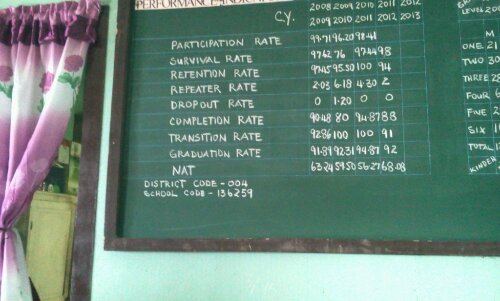 PERFORMANCE INDICATORS
CY. 2008 2009 2010 2011 2012
2009 2010 2011 2012 2013
PARTICIPATION RATE 97.71 96.20 98.41
SURVIVAL RATE 97.62 76 97.44 98
RETENTION RATE 97.45 95.50 100 94
REPEATER RATE 2.03 6.18 4.30 2
DROPOUT RATE 0 1.20 0 0
COMPLETION RATE 90.48 80 94.87 88
TRANSITION RATE 92.86 100 100 91
GRADUATION RATE 91.89 92.31 94.87 92
NAT 63.24 59.50 56.27 68.08
DISTRICT CODE - 004
SCHOOL CODE - 136259
LEVEL 200
M
ONE 21
TWO 30
THREE 28
FOUR 6
FIVE 2
SIX 1
TOTAL 1
KINDER